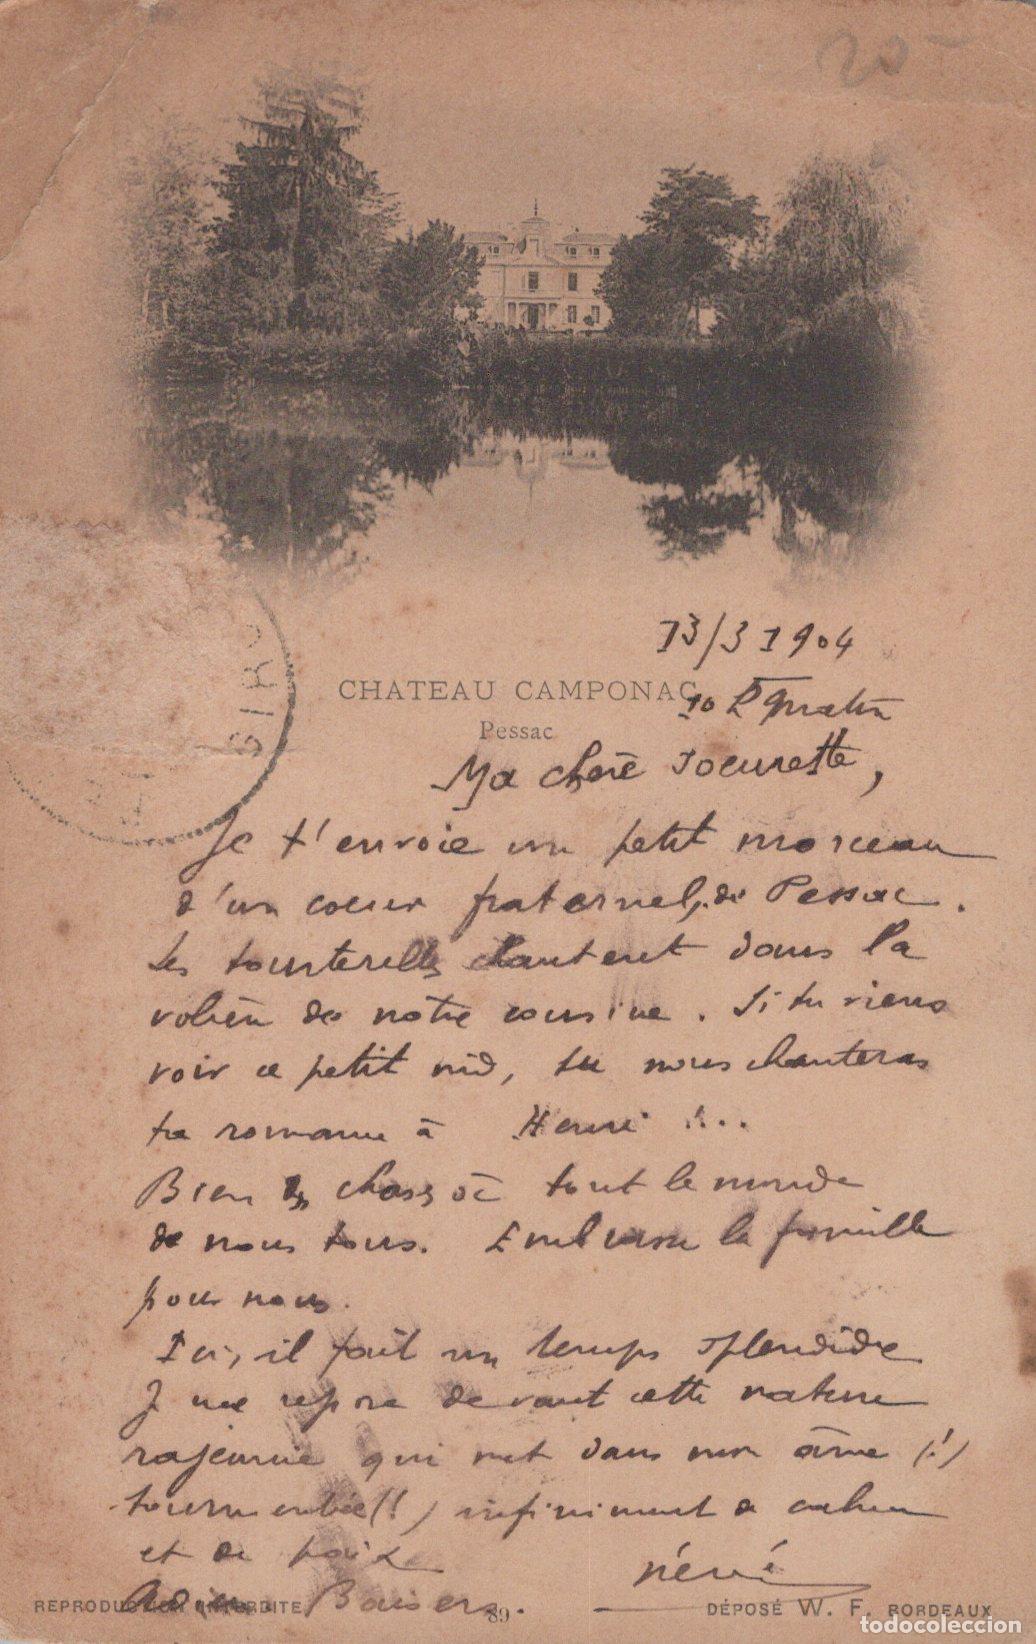 20-
13/3 1904
CHATEAU CAMPONAC
10 h matin
Pessac
Ma chère soeurette,
GIRO
Je t'envoie un petit morceau
d'un coeur fraternel, de Pessac.
Les tourterelles chantent dans la
volière de notre cousine. Si tu viens
voir ce petit nid, tu nous chanteras
ta romance à Henri !...
Bien des choses à tout le monde
de nous tous. Embrasse la famille
pour nous.
Ici, il fait un temps splendide
Je me repose devant cette nature
rajeunie qui met dans mon âme (!)
tourmentée (!) infiniment de calme
et de paix
Adieu Baisers.
REPRODUCTION INTERDITE
89
DÉPOSÉ W. F. BORDEAUX
todocoleccion